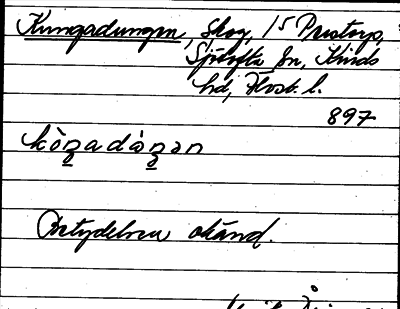 Kungadungen, skog, 1/5 Prestorp,
Sjötofta sn, Kinds
hd, Älvsb. l.
897
kòŋadàŋən
Betydelsen okänd.